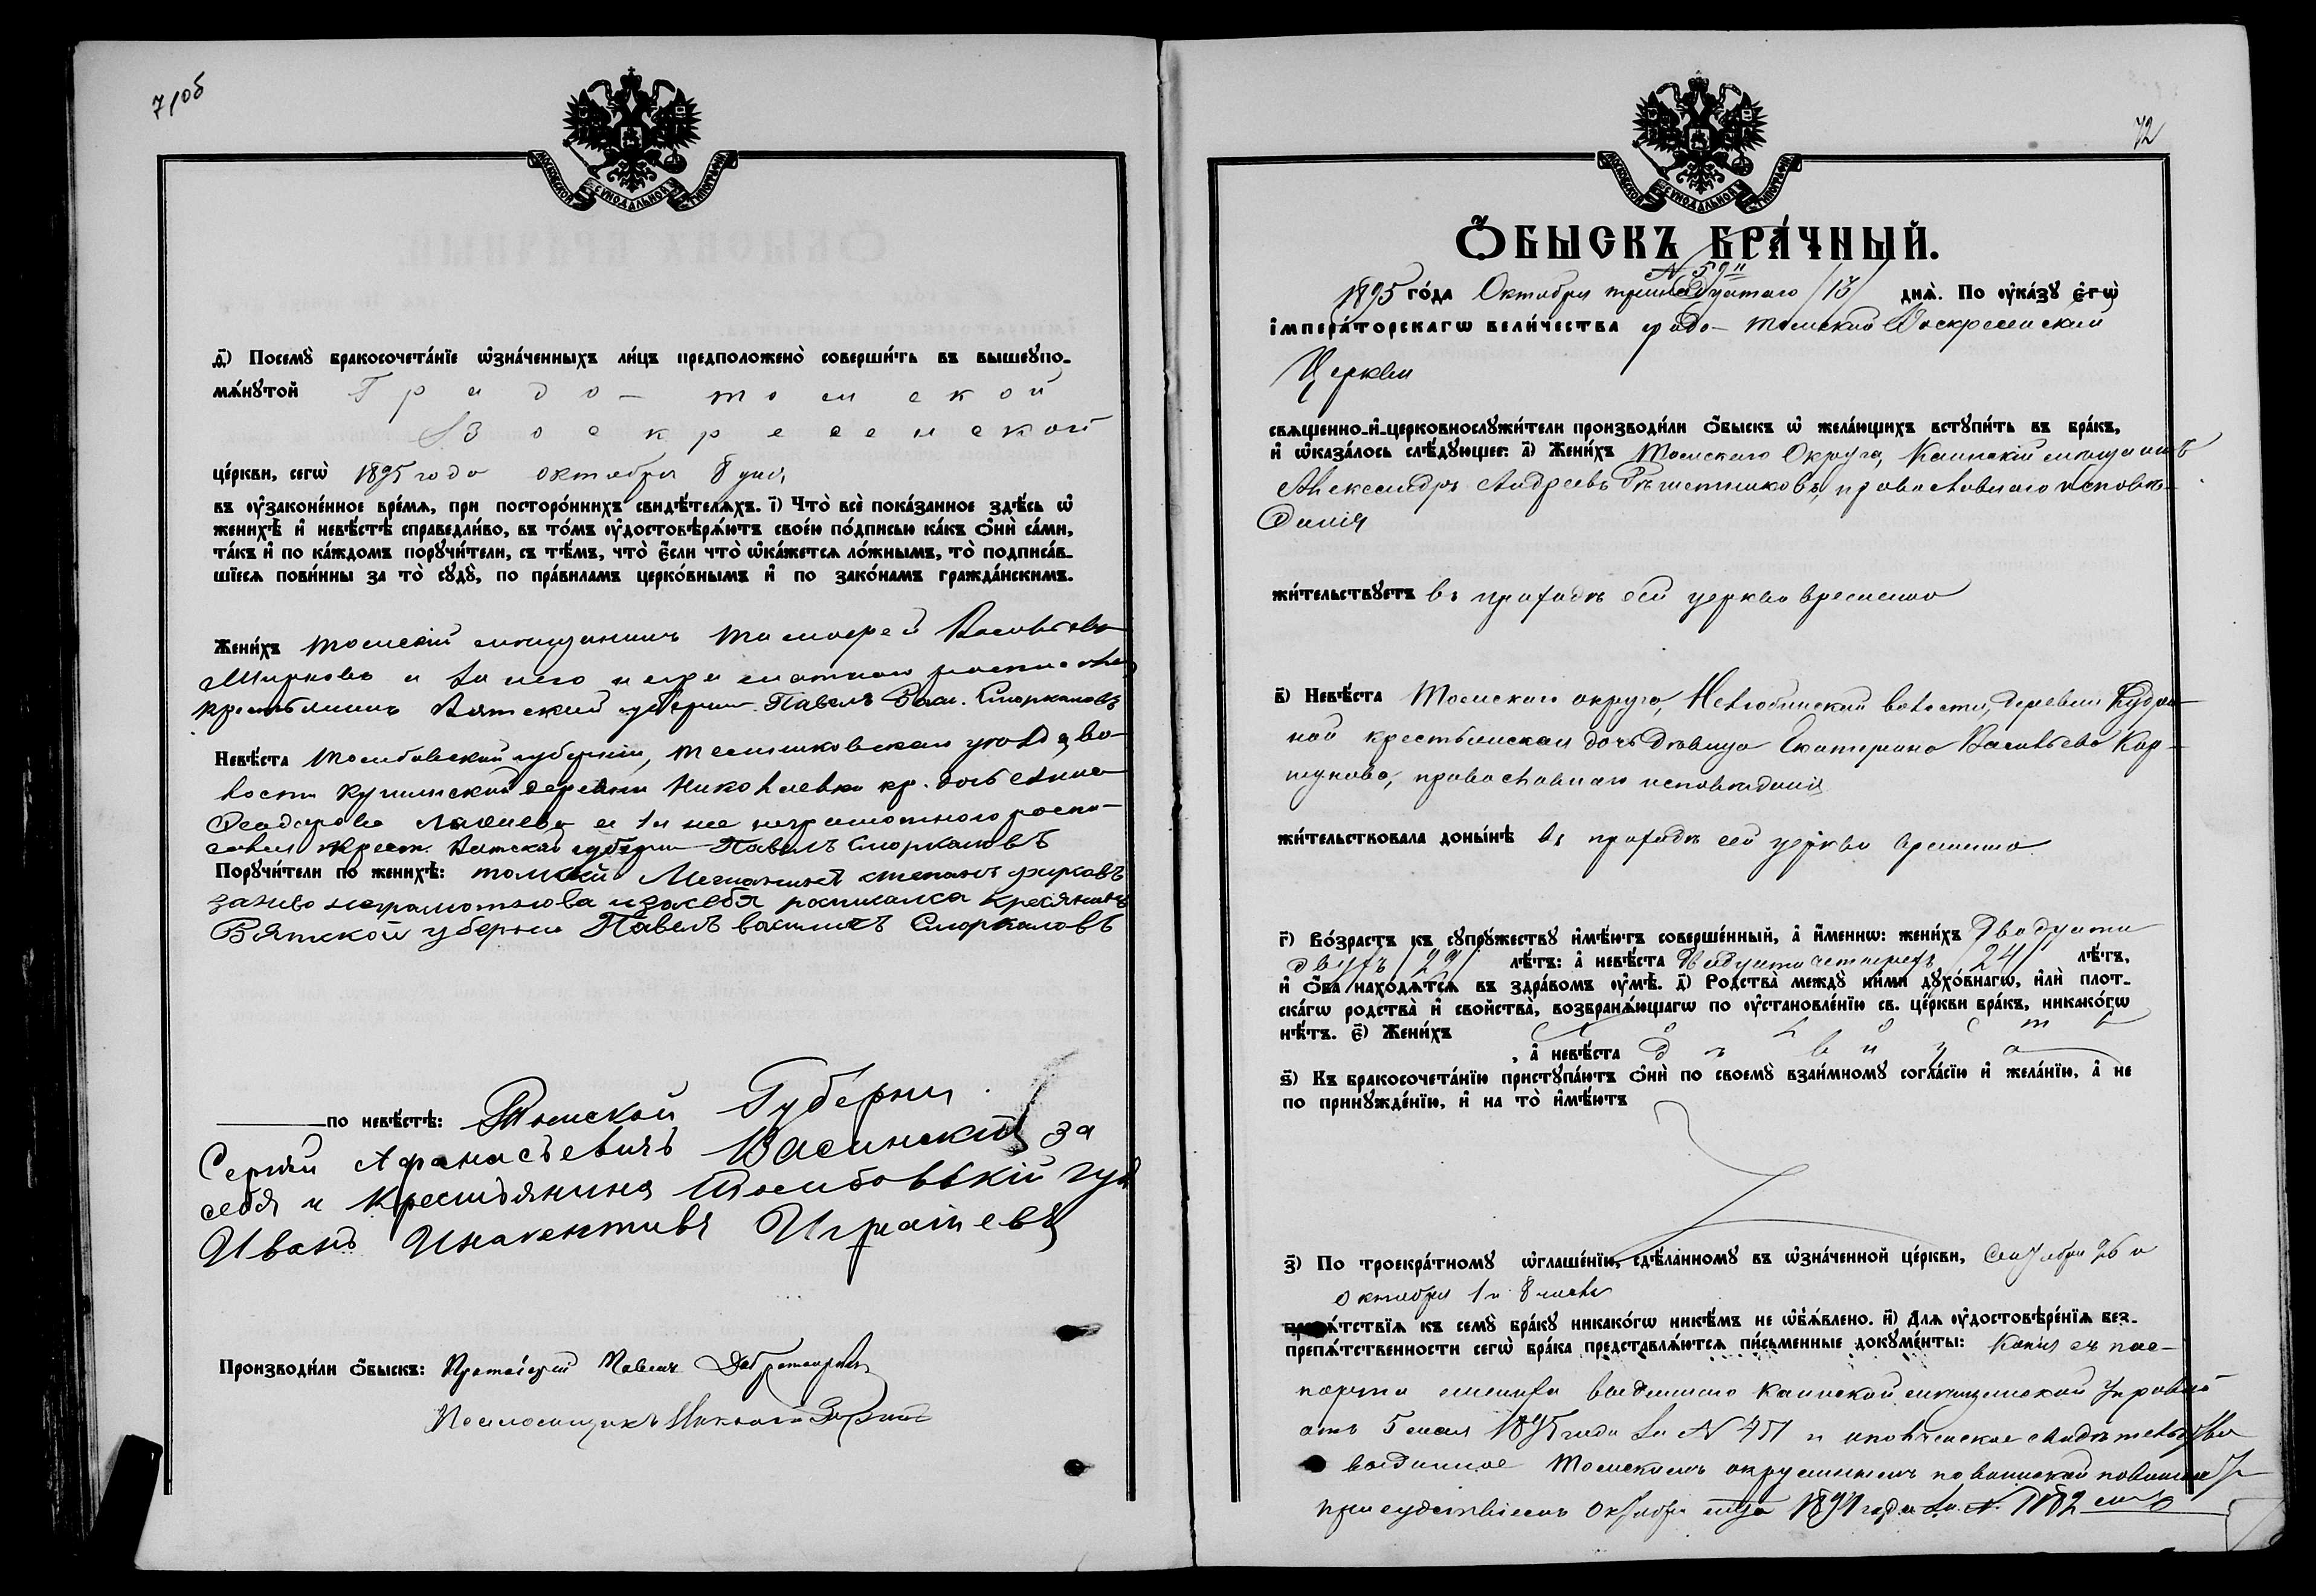 71об
МОСКОВСКОЙ СѴНОДАЛЬНОЙ ТИПОГРАФІИ
д҃і) Посемꙋ̀ бракосочета́нїе ѡ҆зна́ченныхъ ли́цъ предположено̀ соверши́ть въ вышеꙋпо-
мѧ́нꙋтой Градо-томской
Воскресенской
це́ркви, сегѡ̀ 1895 года октября 8 дня,
въ ᲂу҆зако́ненное вре́мѧ, при посторо́ннихъ свидѣ́телѧхъ. і҃) Что̀ всѐ пока́занное здѣ́сь ѡ҆
женихѣ̀ и҆ невѣ́стѣ справедли́во, въ то́мъ ᲂу҆достовѣрѧ́ютъ свое́ю по́дписью ка́къ ѻ҆нѝ са́ми,
та́къ и҆ по ка́ждомъ порꙋчи́тели, съ тѣ́мъ, что̀ є҆́сли что̀ ѡ҆ка́жетсѧ ло́жнымъ, то̀ подписа́в-
шїесѧ пови́нны за то̀ сꙋдꙋ̀, по пра́виламъ церко́внымъ и҆ по зако́намъ гражда́нскимъ.
Жени́хъ томскій мѣщанинъ Васильевъ
Ширковъ а за него неграмотнаго росписался
крестьянинъ Вятской губерніи Павелъ Вас. Сморкаловъ
Невѣ́ста Тамбовской губерніи, уѣзда, во-
лости деревни Николаевки кр. дочь
а за нее неграмотного роспи-
сался крест. Вятской губерни Павелъ Сморкаловъ
Порꙋчи́тели по женихѣ̀: томскій Мещанинъ степанъ
занево неграмотнова изасебя росписалса Кресянинъ
Вятской губерни Павелъ Сморкаловъ
по невѣ́стѣ: Томской Губерни
Сергѣй Афанасьевичъ Васинский за
себя и Крестьянина Тамбовскій губ
Иванъ
Производи́ли ѻ҆́быскъ: Протоіерей Павелъ
Псаломщикъ Николай
72
МОСКОВСКОЙ СѴНОДАЛЬНОЙ ТИПОГРАФІИ
Ѻ҆́БЫСКЪ БРА́ЧНЫЙ.
N 59й
1895 го́да Октября тринадцатаго /13/ днѧ̀. По ᲂу҆ка́зꙋ є҆гѡ̀
і҆мпера́торскагѡ вели́чества градо-Томской Воскресенской
Церкви
свѧщенно-и҆-церковнослꙋжи́тели производи́ли ѻ҆́быскъ ѡ҆ жела́ющихъ встꙋпи́ть въ бра́къ,
и҆ ѡ҆каза́лось слѣ́дꙋющее: а҃) Жени́хъ Томскаго Округа, Каинскій мѣщанинъ
Александръ Андреевъ Рѣшетниковъ, православнаго исповѣ-
данія
жи́тельствꙋетъ въ приходѣ сей церкви временно
в҃) Невѣ́ста Томскаго округа, Нелюбинской волости, деревни Кудри-
ной крестьянская дочь дѣвица Екатерина Васильева Кор-
шунова, православнаго исповѣданія
жи́тельствовала доны́нѣ въ приходѣ сей церкви временно
г҃) Во́зрастъ къ сꙋпрꙋ́жествꙋ и҆мѣ́ютъ соверше́нный, а҆ и҆́меннѡ: жени́хъ Двадцати
двухъ /22/ лѣ́тъ: а҆ невѣ́ста двадцати четырехъ /24/ лѣ́тъ,
и҆ ѻ҆́ба нахо́дѧтсѧ въ здра́вомъ ᲂу҆мѣ̀. д҃) Родства̀ междꙋ̀ ни́ми дꙋхо́внагѡ, и҆лѝ плот-
ска́гѡ родства̀ и҆ сво́йства̀, возбранѧ́ющагѡ по ᲂу҆становле́нїю св. це́ркви бра́къ, никако́гѡ
нѣ́тъ. є҃) Жени́хъ холостъ
, а҆ невѣ́ста дѣвица
ѕ҃) Къ бракосочета́нїю пристꙋпа́ютъ ѻ҆нѝ по своемꙋ̀ взаи́мномꙋ согла́сїю и҆ жела́нїю, а҆ не
по принꙋжде́нїю, и҆ на то̀ и҆мѣ́ютъ
з҃) По троекра́тномꙋ ѡ҆глаше́нїю, сдѣ́ланномꙋ въ ѡ҆зна́ченной це́ркви, Сентября 26 и
октября 1 и 8 числа
препѧ́тствїѧ къ семꙋ̀ бра́кꙋ никако́гѡ никѣ́мъ не ѡ҆б̾ѧ́влено. и҃) Длѧ ᲂу҆достовѣре́нїѧ без-
препѧ́тственности сегѡ̀ бра́ка представлѧ́ютсѧ пи́сьменные докꙋме́нты: Копія съ пас-
порта жениха выданнаго Каинской мѣщанской Управой
отъ 5 мая 1895 года за N 451 и ополченское свидѣтельство
выданное Томскимъ окружнымъ по воинской повинности
присудствіемъ Октября 1894 года за N